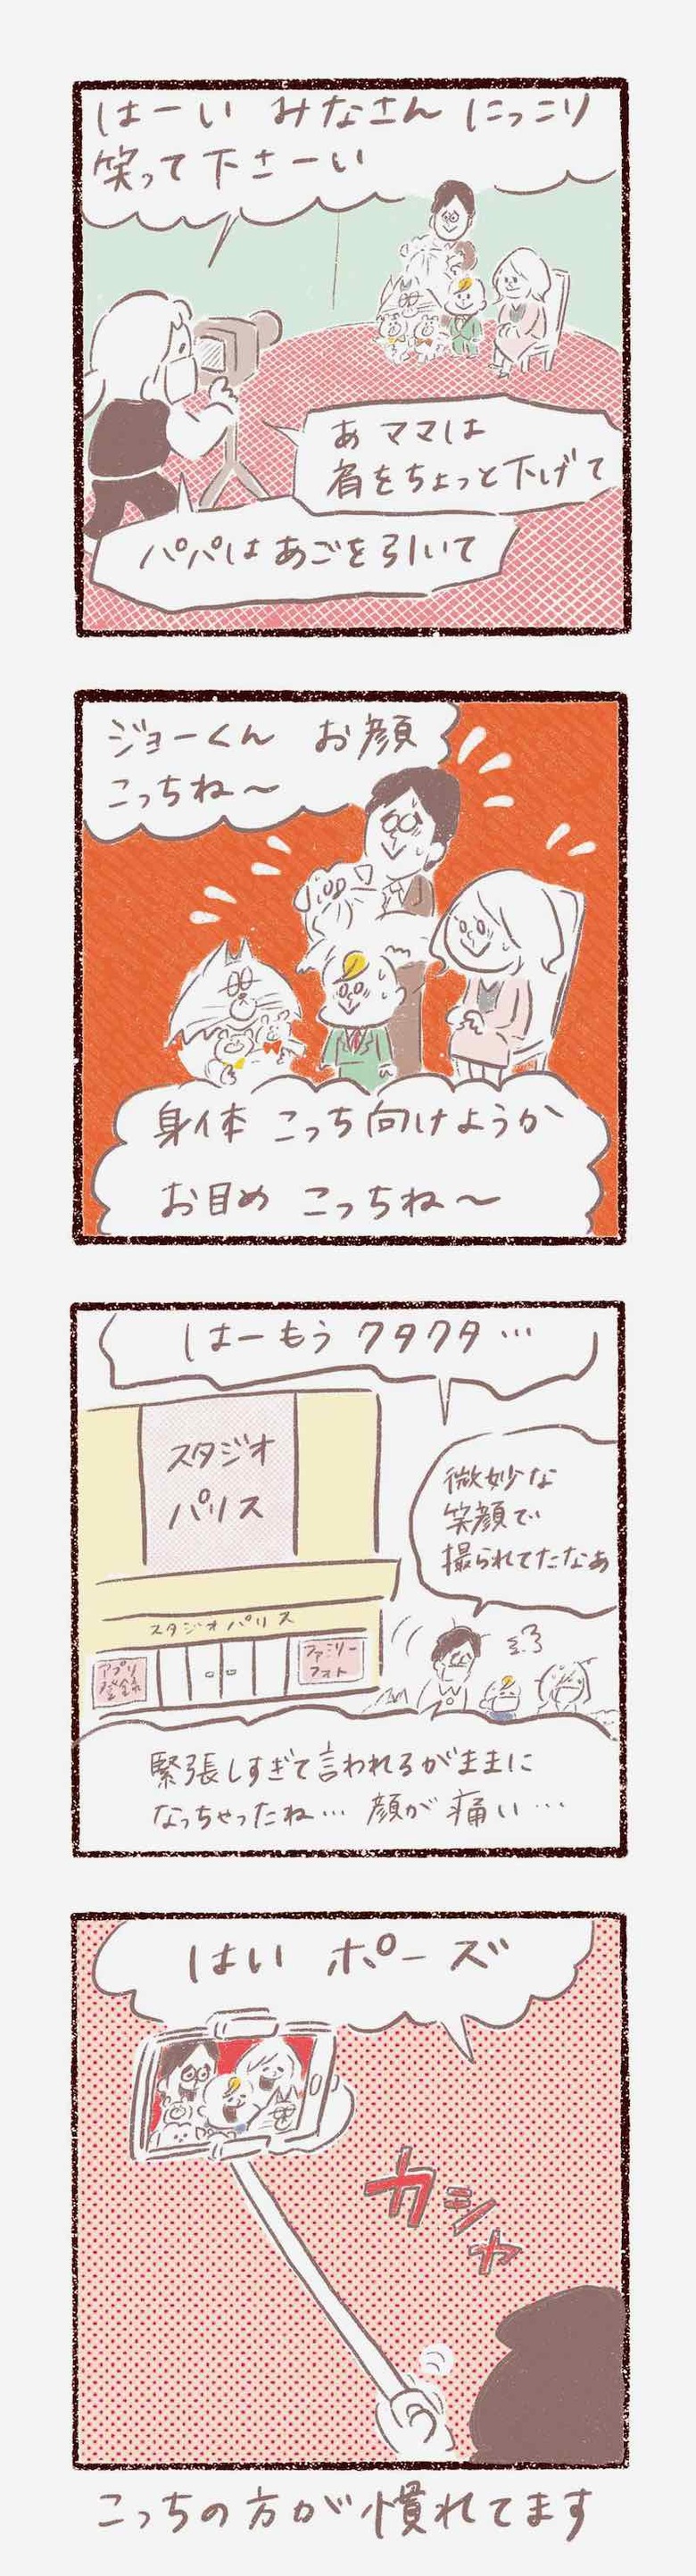 はーい みなさん にっこり
笑って下さーい
あ ママは
肩をちょっと下げて
パパは あごを引いて
ジョーくん お顔
こっちね〜
身体 こっち向けようか
お目め こっちね〜
はーもう クタクタ…
微妙な
笑顔で
撮られてたなあ
スタジオ
パリス
スタジオパリス
アプリ
登録
ファミリー
フォト
緊張しすぎて言われるがままに
なっちゃったね… 顔が痛い…
はい ポーズ
カシャ
こっちの方が慣れてます